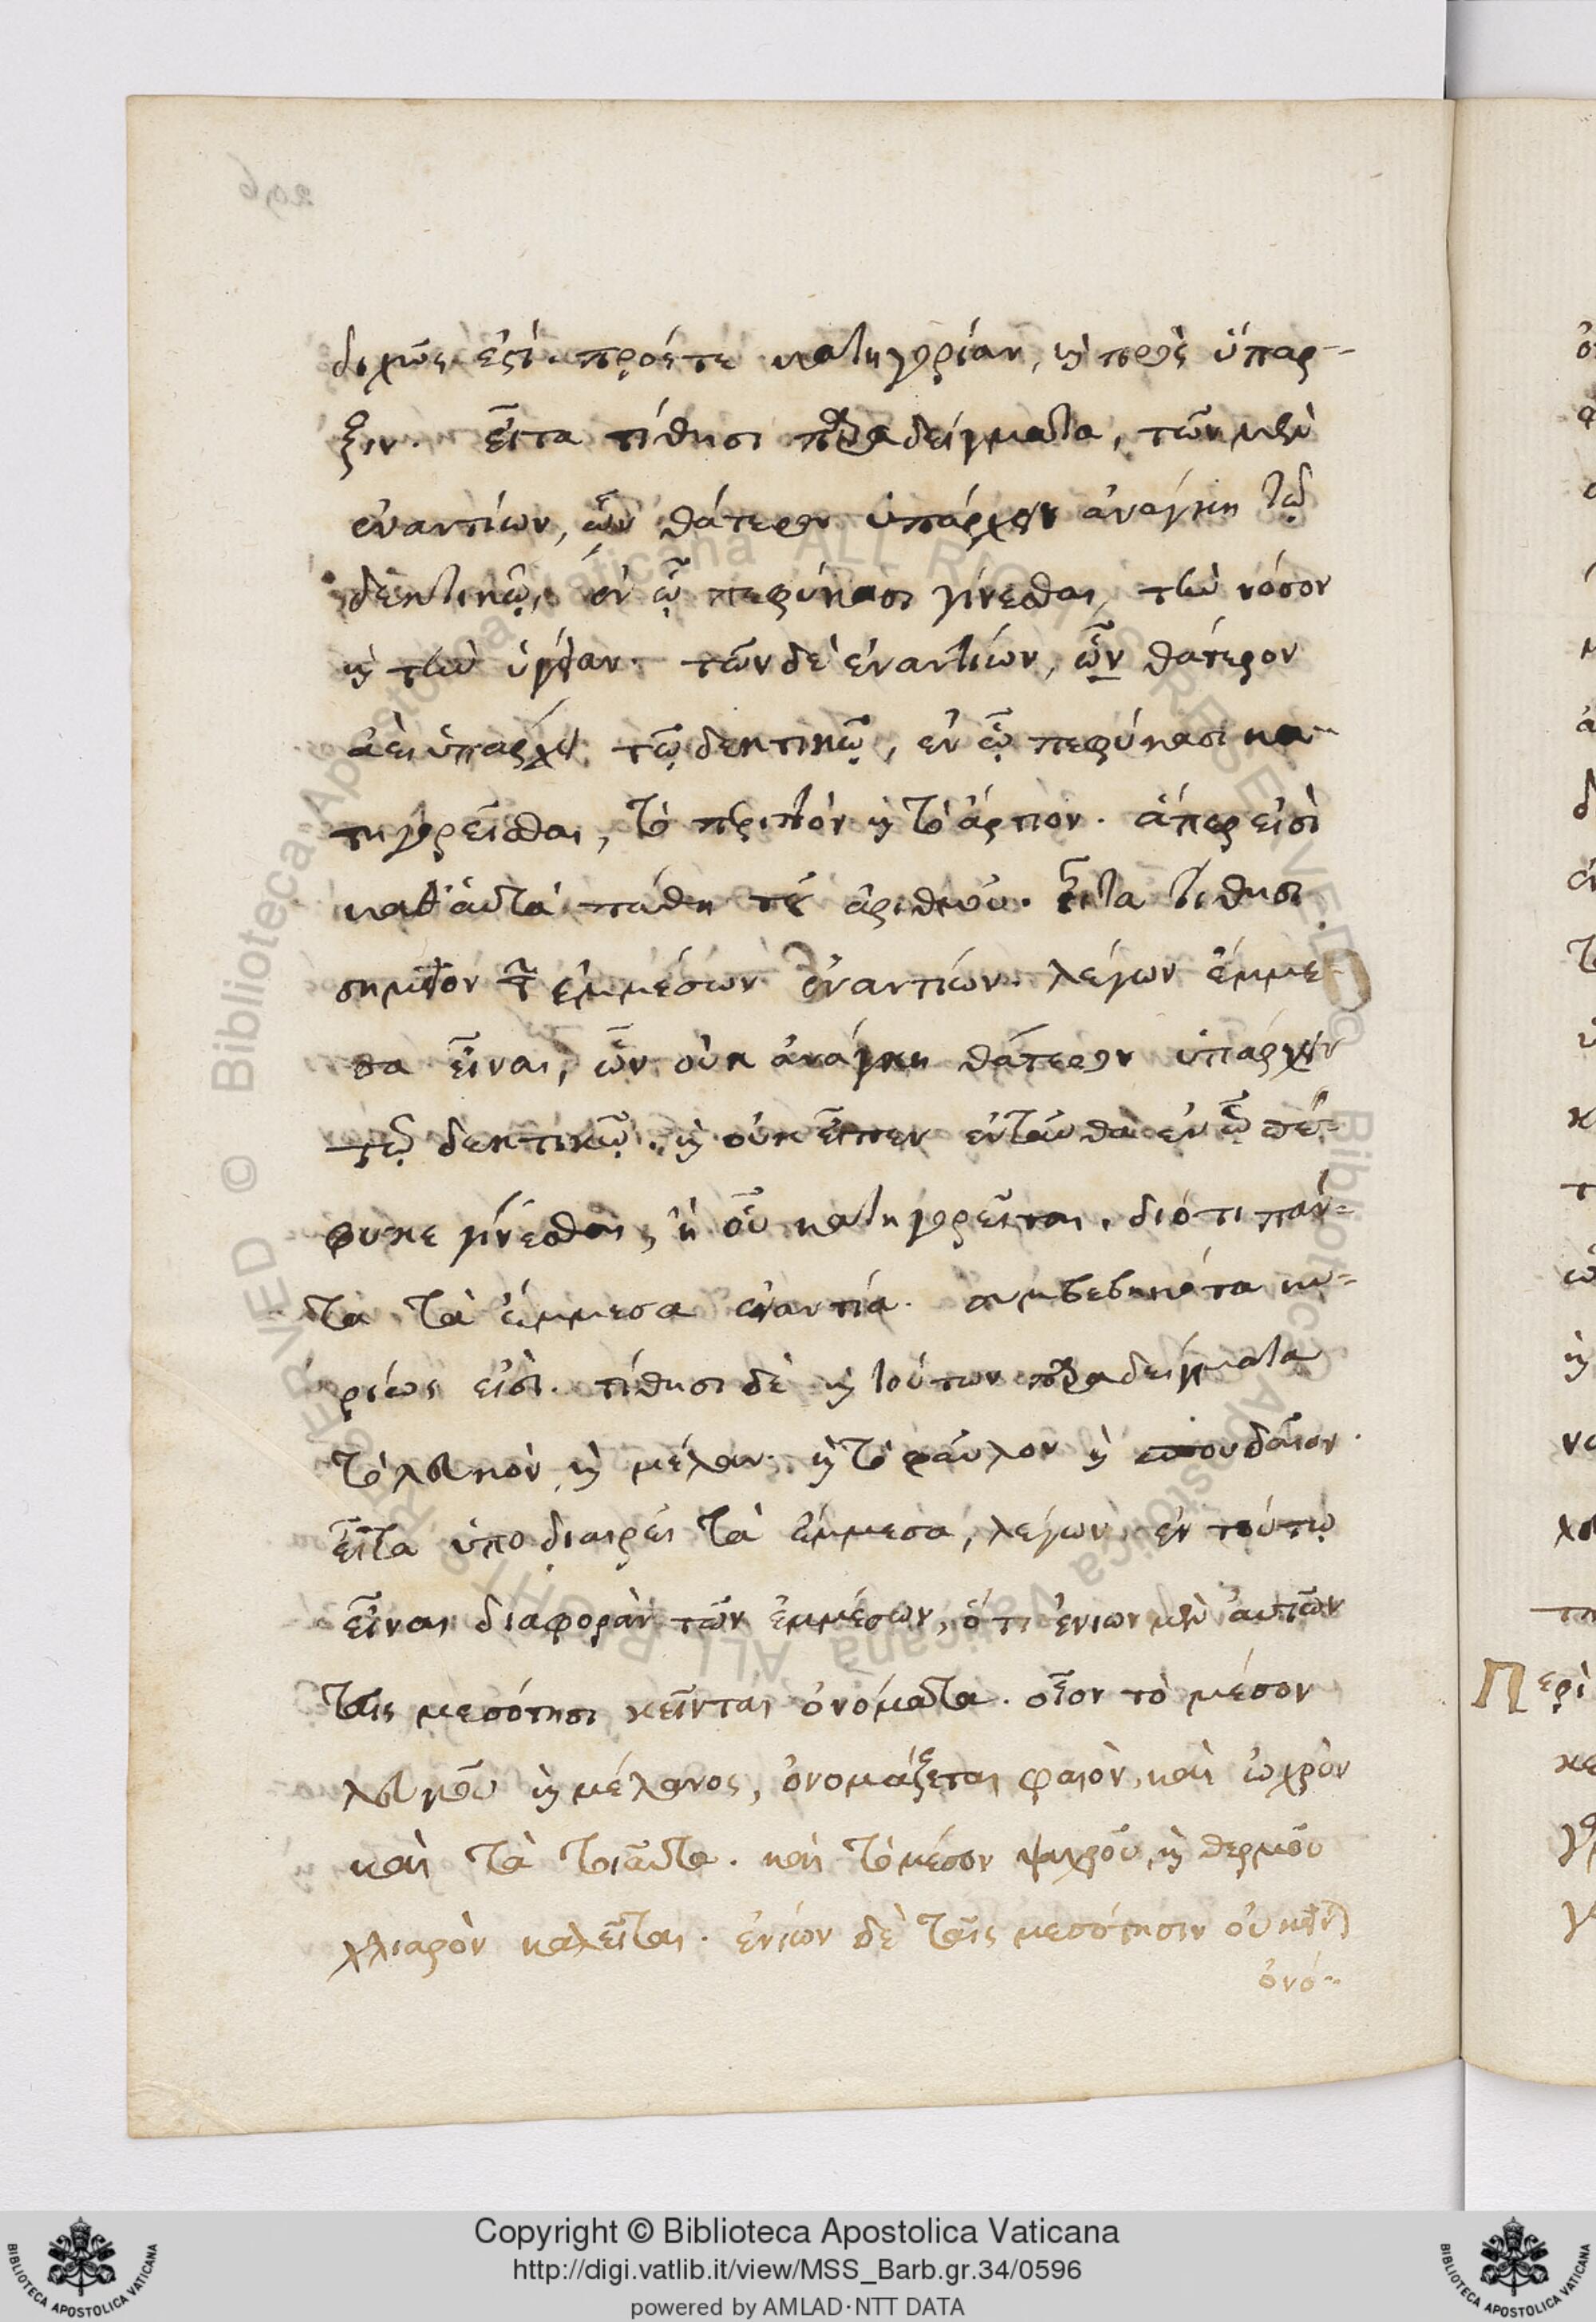 διχῶς ἐστί. πρός τε κατηγορίαν, καὶ πρὸς ὕπαρ-
ξιν. εἶτα τίθησι παραδείγματα, τῶν μὲν
ἐναντίων, ὧν θάτερον ὑπάρχειν ἀνάγκη τῷ
δεκτικῷ, ἐν ᾧ πεφύκασι γίνεσθαι, τὴν νόσον
καὶ τὴν ὑγείαν. τῶν δὲ ἐναντίων, ὧν θάτερον
ἀεὶ ὑπάρχει τῷ δεκτικῷ, ἐν ᾧ πεφύκασι κα-
τηγορεῖσθαι, τὸ περιττὸν καὶ τὸ ἄρτιον. ἅπερ εἰσὶ
καθ' αὑτὰ πάθη τοῦ ἀριθμοῦ. εἶτα τίθησι
σημεῖον τῶν ἐμμέσων ἐναντίων. λέγων ἔμμε-
σα εἶναι, ὧν οὐκ ἀνάγκη θάτερον ὑπάρχειν
τῷ δεκτικῷ. καὶ οὐκ εἶπεν ἐνταῦθα ἐν ᾧ πέ-
φυκε γίνεσθαι, ἢ οὗ κατηγορεῖται. διότι πάν-
τα τὰ ἔμμεσα ἐναντία. συμβεβηκότα κυ-
ρίως εἰσί. τίθησι δὲ καὶ τούτων παραδείγματα
τὸ λευκὸν καὶ μέλαν. καὶ τὸ φαῦλον καὶ σπουδαῖον.
εἶτα ὑποδιαιρεῖ τὰ ἔμμεσα, λέγων ἐν τούτῳ
εἶναι διαφορὰν τῶν ἐμμέσων, ὅτι ἐνίων μὲν αὐτῶν
ταῖς μεσότησι κεῖνται ὀνόματα. οἷον τὸ μέσον
λευκοῦ καὶ μέλανος, ὀνομάζεται φαιὸν, καὶ ὠχρὸν
καὶ τὰ τοιαῦτα. καὶ τὸ μέσον ψυχροῦ καὶ θερμοῦ
χλιαρὸν καλεῖται. ἐνίων δὲ ταῖς μεσότησιν οὐ κεῖνται
ὀνό-
Περὶ
Copyright © Biblioteca Apostolica Vaticana
http://digi.vatlib.it/view/MSS_Barb.gr.34/0596
powered by AMLAD·NTT DATA